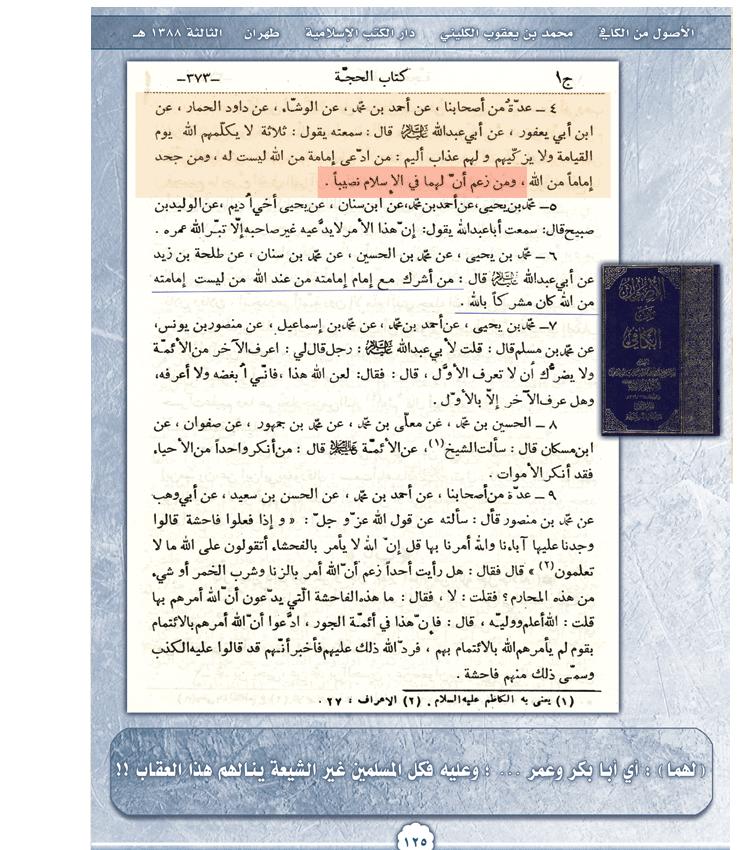 الأصول من الكافي محمد بن يعقوب الكليني دار الكتب الإسلامية طهران الثالثة ١٣٨٨ هـ
ج١ كتاب الحجّة -٣٧٣-
٤ ــ عدّة من أصحابنا ، عن أحمد بن محمّد ، عن الوشّاء ، عن داود الحمار ، عن
ابن أبي يعفور ، عن أبي عبدالله عليه السلام قال : سمعته يقول : ثلاثة لا يكلّمهم الله يوم
القيامة ولا يزكّيهم و لهم عذاب أليم : من ادّعى إمامة من الله ليست له ، ومن جحد
إماماً من الله ، ومن زعم أنّ لهما في الإسلام نصيباً .
٥ــ محمّد بن يحيى، عن أحمد بن محمّد، عن ابن سنان ، عن يحيى أخي اُديم ، عن الوليد بن
صبيح قال: سمعت أباعبدالله يقول: إنّ هذا الأمر لا يدّعيه غير صاحبه إلّا تبّر الله عمره .
٦ ــ محمّد بن يحيى ، عن محمّد بن الحسين ، عن محمّد بن سنان ، عن طلحة بن زيد
عن أبي عبدالله عليه السلام قال : من أشرك مع إمام إمامته من عند الله من ليست إمامته
من الله كان مشركاً بالله .
٧ــ محمّد بن يحيى ، عن أحمد بن محمّد ، عن محمّد بن إسماعيل ، عن منصور بن يونس،
عن محمّد بن مسلم قال : قلت لأبي عبدالله عليه السلام : رجل قال لي : اعرف الآخر من الأئمّة
ولا يضرّك أن لا تعرف الأوّل ، قال : فقال: لعن الله هذا ،فانّي اُبغضه ولا أعرفه،
وهل عرف الآخر إلّا بالأوّل .
٨ ــ الحسين بن محمّد ، عن معلّى بن محمّد ، عن محمّد بن جمهور ، عن صفوان ، عن
ابن مسكان قال : سألت الشيخ (١)، عن الأئمّة عليهم السلام قال : من أنكر واحداً من الأحياء
فقد أنكر الأموات .
٩ ــ عدّة من أصحابنا ، عن أحمد بن محمّد ، عن الحسن بن سعيد ، عن أبي وهب
عن محمّد بن منصور قال : سألته عن قول الله عزّ و جلّ : « و إذا فعلوا فاحشة قالوا
وجدنا عليها آباءنا والله أمرنا بها قل إنّ الله لا يأمر بالفحشاء أتقولون على الله ما لا
تعلمون (٢) » قال فقال : هل رأيت أحداً زعم أنّ الله أمر بالزنا وشرب الخمر أو شيء
من هذه المحارم؟ فقلت : لا ، فقال : ما هذه الفاحشة الّتي يدّعون أنّ الله أمرهم بها
قلت : الله أعلم ووليّه ، قال : فإنّ هذا في أئمّة الجور ، ادّعوا أنّ الله أمرهم بالائتمام
بقوم لم يأمرهم الله بالائتمام بهم ، فردّ الله ذلك عليهم فأخبر أنّهم قد قالوا عليه الكذب
وسمّى ذلك منهم فاحشة .
(١) يعنى به الكاظم عليه السلام . (٢) الاعراف : ٢٧ .
الأصول
من
الكافي
(لهما) : أي أبا بكر وعمر ... ؛ وعليه فكل المسلمين غير الشيعة ينالهم هذا العقاب !!
١٢٥